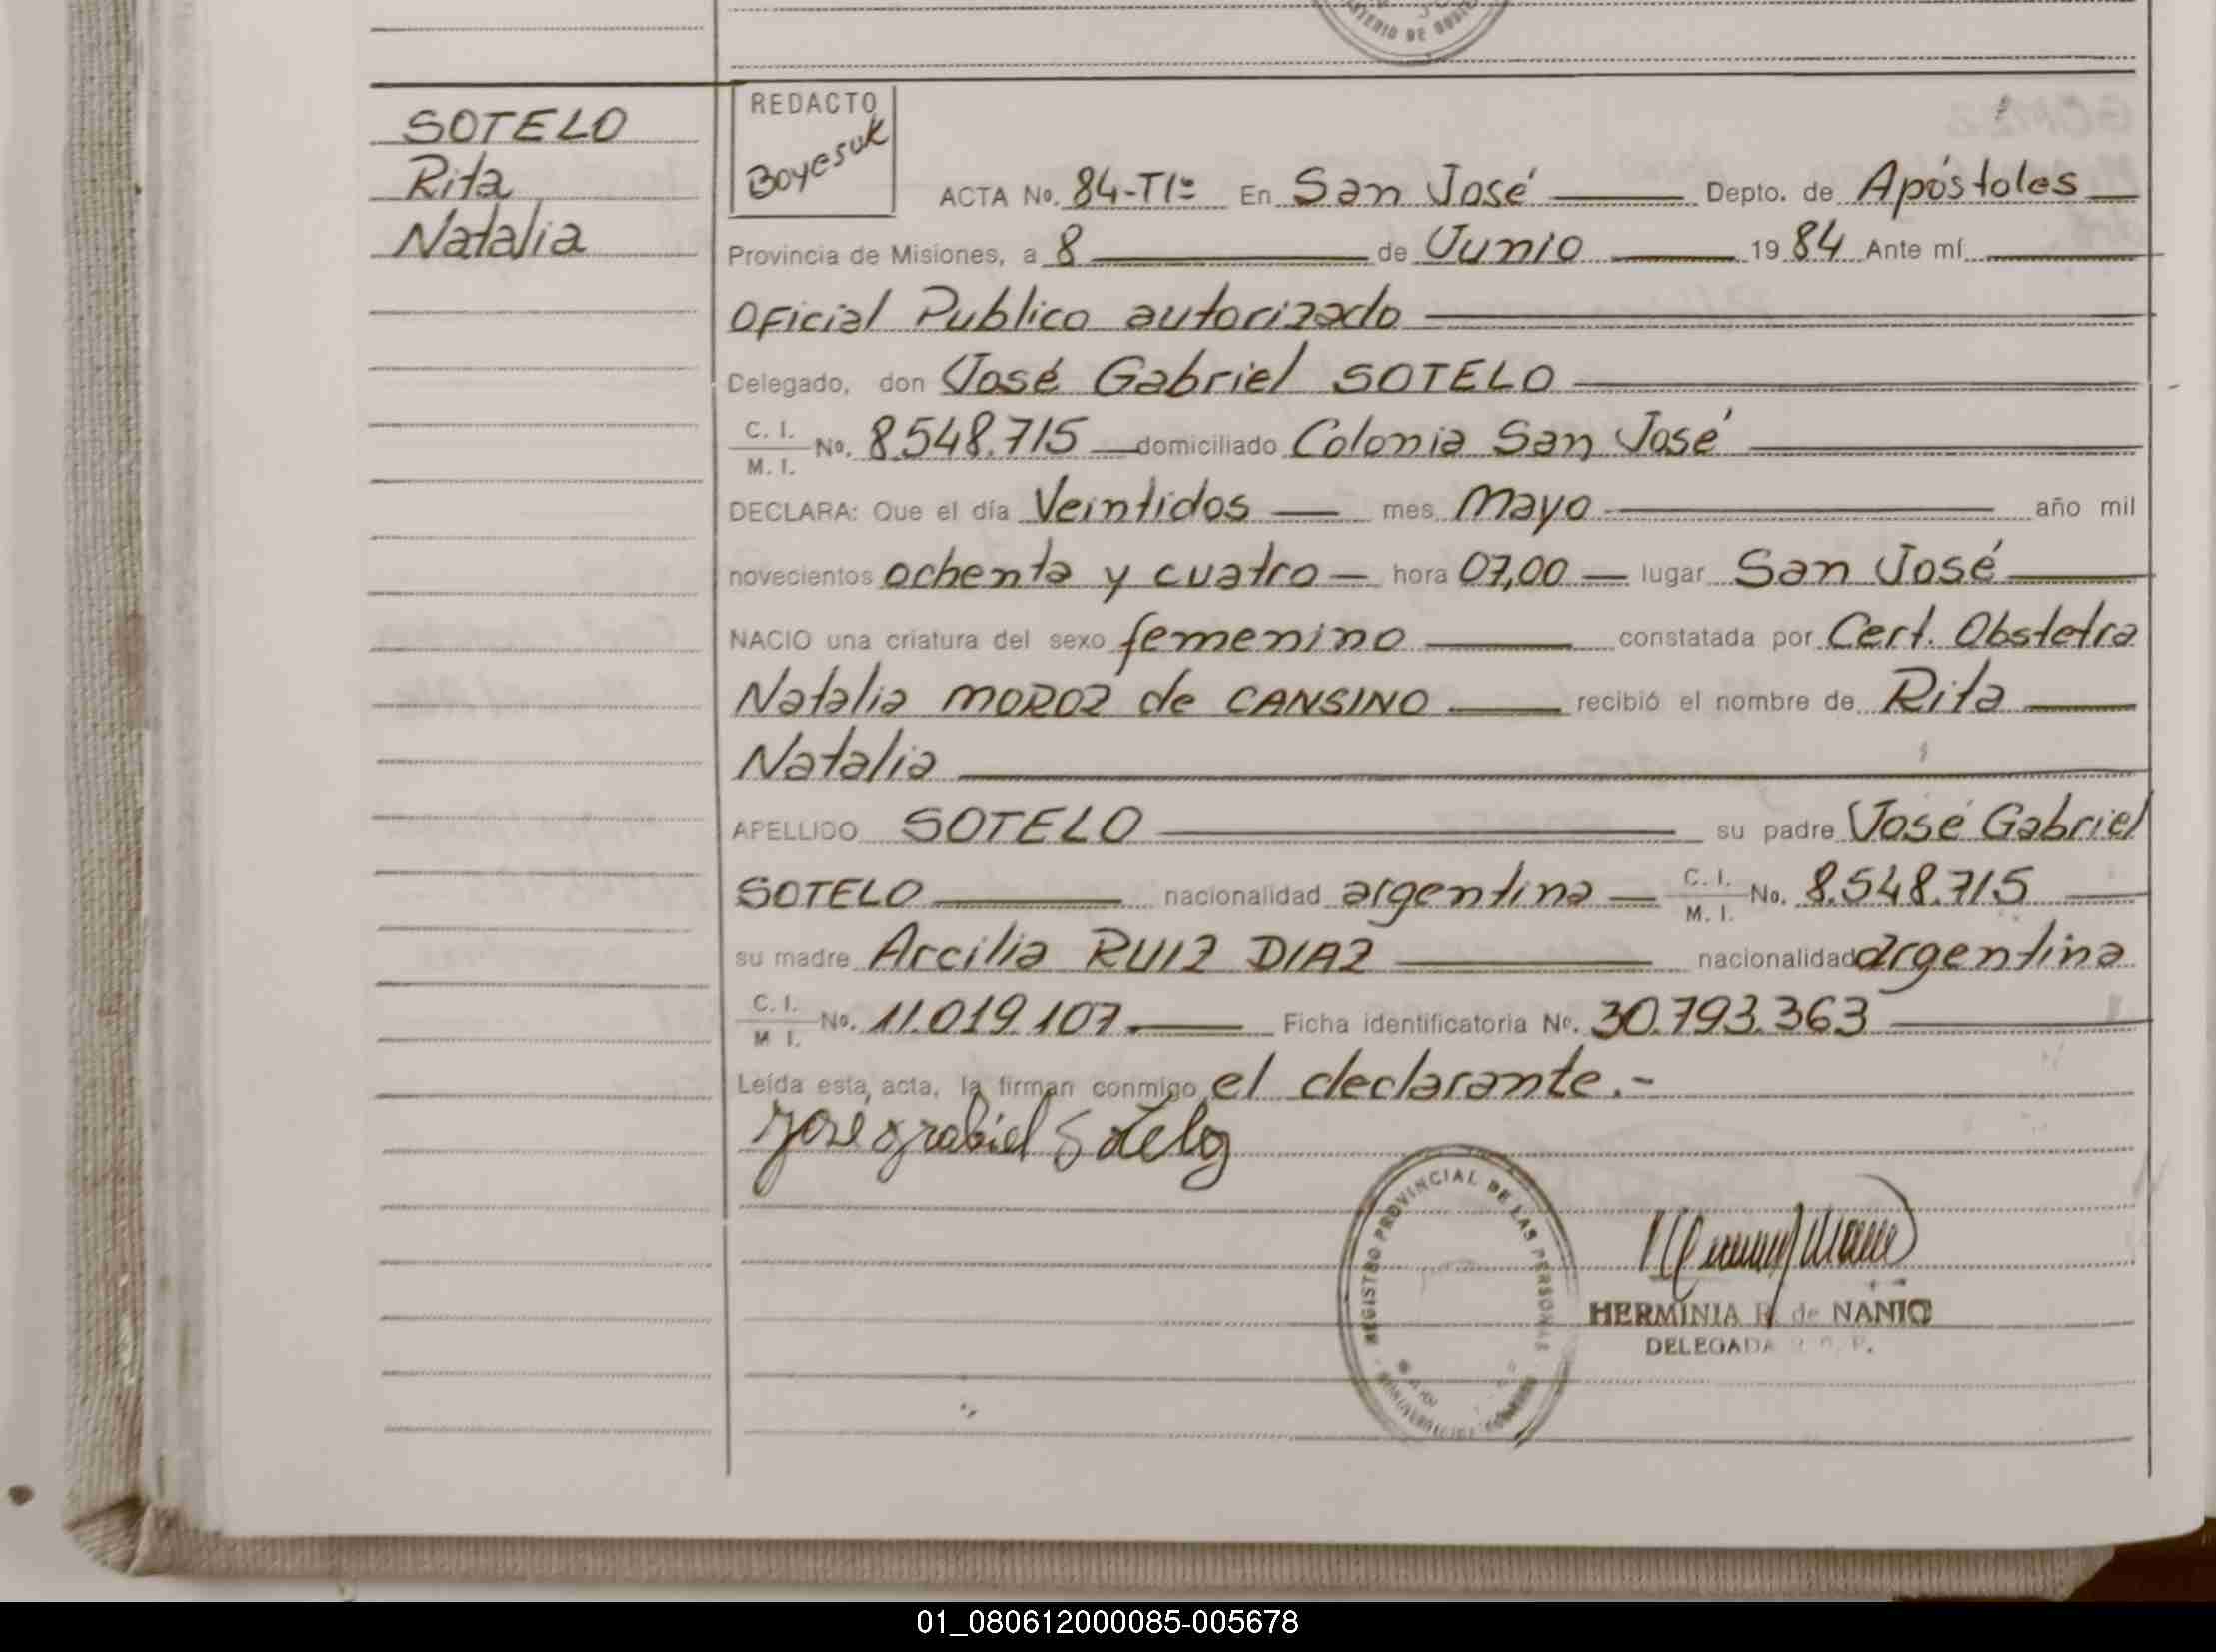 MINISTERIO DE GOBIE
SOTELO
Rita
Natalia
REDACTO
Boyesuk
ACTA No. 84-T1º En San José Depto. de Apóstoles
Provincia de Misiones, a 8 de Junio 1984 Ante mí
Oficial Publico autorizado
Delegado, don José Gabriel SOTELO
C. I. / M. I. No. 8.548.715 domiciliado Colonia San José
DECLARA: Que el día Veintidos mes Mayo año mil
novecientos ochenta y cuatro hora 07,00 lugar San José
NACIO una criatura del sexo femenino constatada por Cert. Obstetra
Natalia MOROZ de CANSINO recibió el nombre de Rita
Natalia
APELLIDO SOTELO su padre José Gabriel
SOTELO nacionalidad argentina C. I. / M. I. No. 8.548.715
su madre Arcilia RUIZ DIAZ nacionalidad argentina
C. I. / M I. No. 11.019.107 Ficha identificatoria No. 30.793.363
Leída esta acta, la firman conmigo el declarante.-
José Grabiel Sotelo
REGISTRO PROVINCIAL DE LAS PERSONAS
HERMINIA R. de NANIO
DELEGADA R. P. P.
01_080612000085-005678